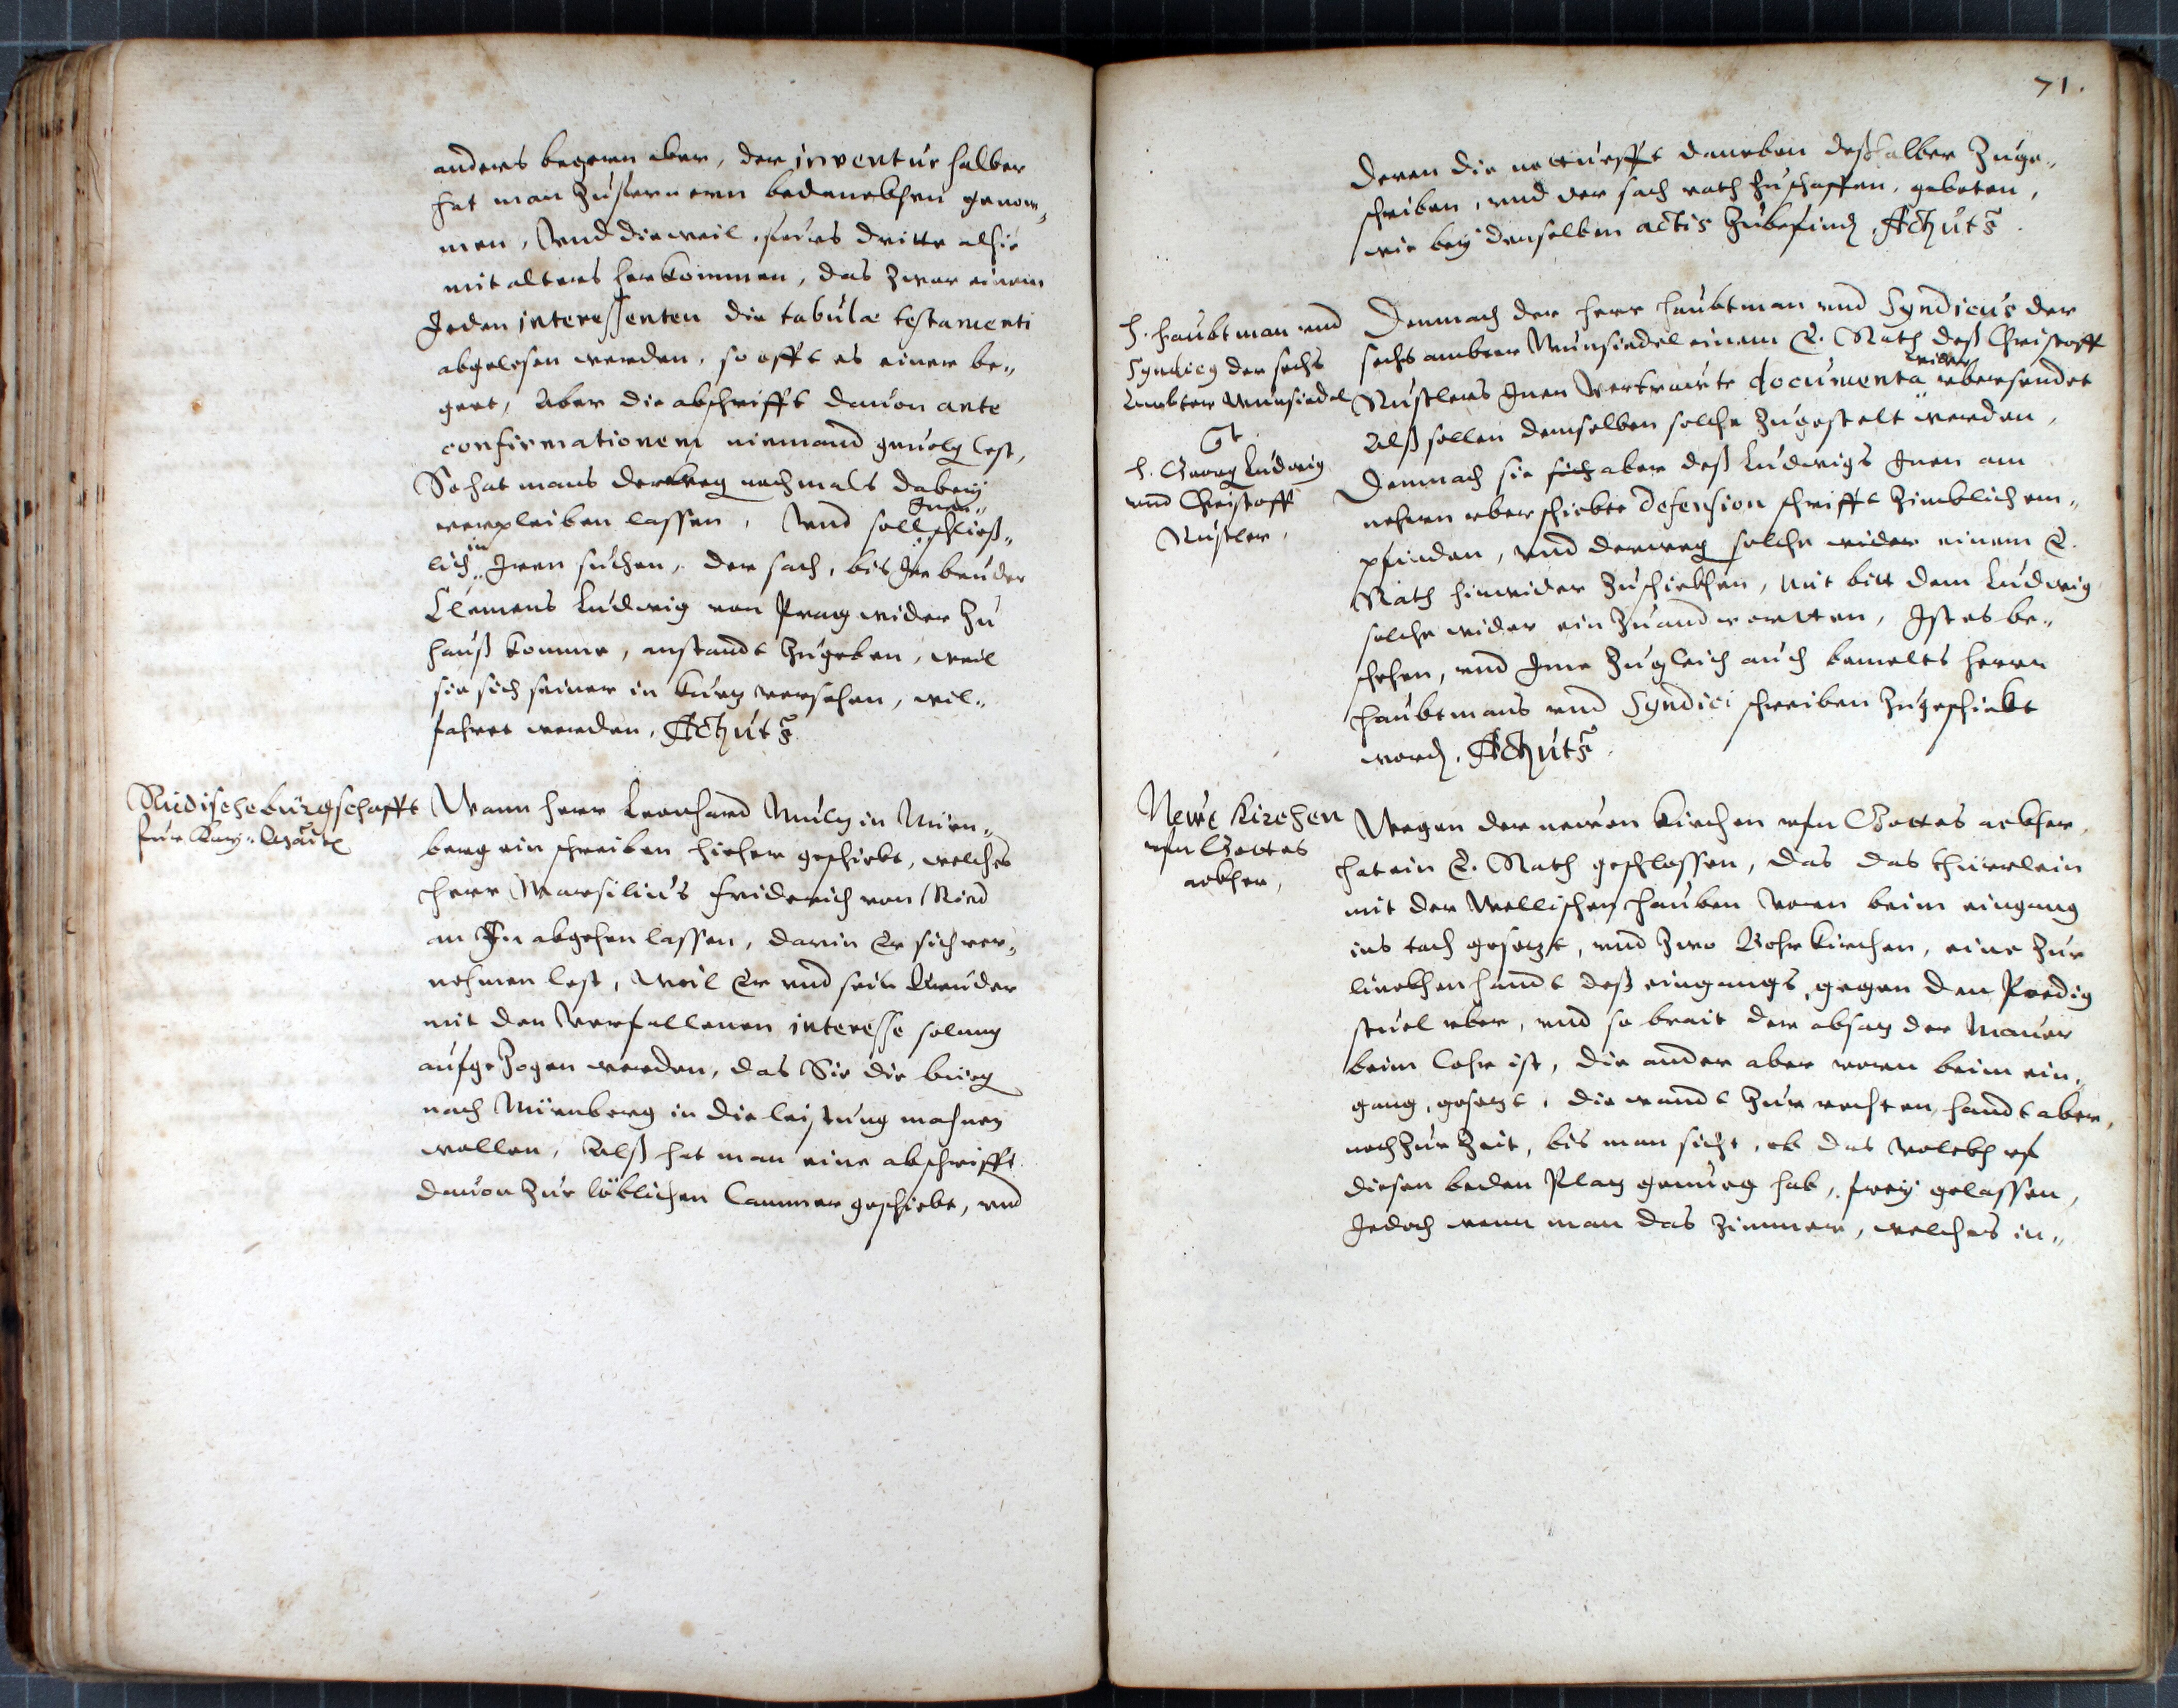 anders begern aber, der inventur halber
hat man zuuorn ein bedenckhen genom„
men, Vnd dieweil, fürs dritte alhie
mit alters herkommen, das zwar einem
Jeden interessenten die tabulæ testamenti
abgelesen werden, so offt es einer be„
gert, Aber die abschrifft dauon ante
confirmationem niemand geuolg lest,
So hat mans derweg nochmals dabey
verpleiben lassen, Vnd soll Jnen schließ„
lich in Jren suchen, der sach, bis Jr bruder
Clemens Ludwig von Prag wider zu
hauß komme, anstandt zugeben, weil
sie sich seiner in kurtz versehen, wil„
fahret werden. Actum ut s.
Rüdische bürgschafft
für Kay: May:
Wann herr Leonhard Multz in Nürn„
berg ein schreiben hieher geschickt, welches
herr Marsilius Friderich von Ried
an Jn abgehen lassen, darin Er sich ver„
nehmen lest, weil Er vnd sein Bruder
mit den verfallenen interesse solang
aufgezogen werden, das Sie die bürg
nach Nürnberg in die leistung mahnen
wollen, Alß hat man eine abschrifft
dauon zur löblichen Cammer geschickt, vnd
71.
deren die notturfft daneben deßhalber zuge„
schriben, vnd der sach rath zuschaffen, gebeten,
wie bey denselben actis zubefinden. Actum ut s.
H. haubtman vnd
Syndicus der sechs
Ambter Wunsiedel
Ct
H. Georg Ludwig
vnd Christoff
Rustler,
Demnach der herr haubtman vnd Syndicus der
sechs ambter Wunsiedel einem E. Rath deß Christoff
Rustlers Jnen Vertraute documenta wider vbersendet
Alß sollen demselben solche zugestelt werden,
Demnach sie sich aber deß Ludwigs Jnen am
nehern vberschickte defension schrifft zimblich em„
pfinden, vnd derweg solche wider einem E.
Rath hinwider zuschickhen, mit bitt dem Ludwig
solche wider einzuandworten, Jst es be„
schehen, vnd Jme zugleich auch bemelts herrn
haubtmans vnd Syndici schreiben zugeschickt
worden. Actum ut s.
Newe Kirchen
vfm Gottes
ackher,
Wegen der neuen Kirchen vfm Gottes ackher,
hat ein E. Rath geschlossen, das das thürmlein
mit der Wellischen hauben vorn beim eingang
ins tach gesetzt, vnd zwo Bohr kirchen, eine zur
linckhen handt deß eingangs, gegen den Predig
stuel vber, vnd so brait der absatz der Mauer
beim Cohr ist, die ander aber vorn beim ein„
gang, gesetzt, die wandt zur rechten handt aber,
noch zur zeit, bis man sicht, ob das volckh vf
diesen beden Platz genueg hab, frey gelassen,
Jedoch wenn man das zimmer, welches in„